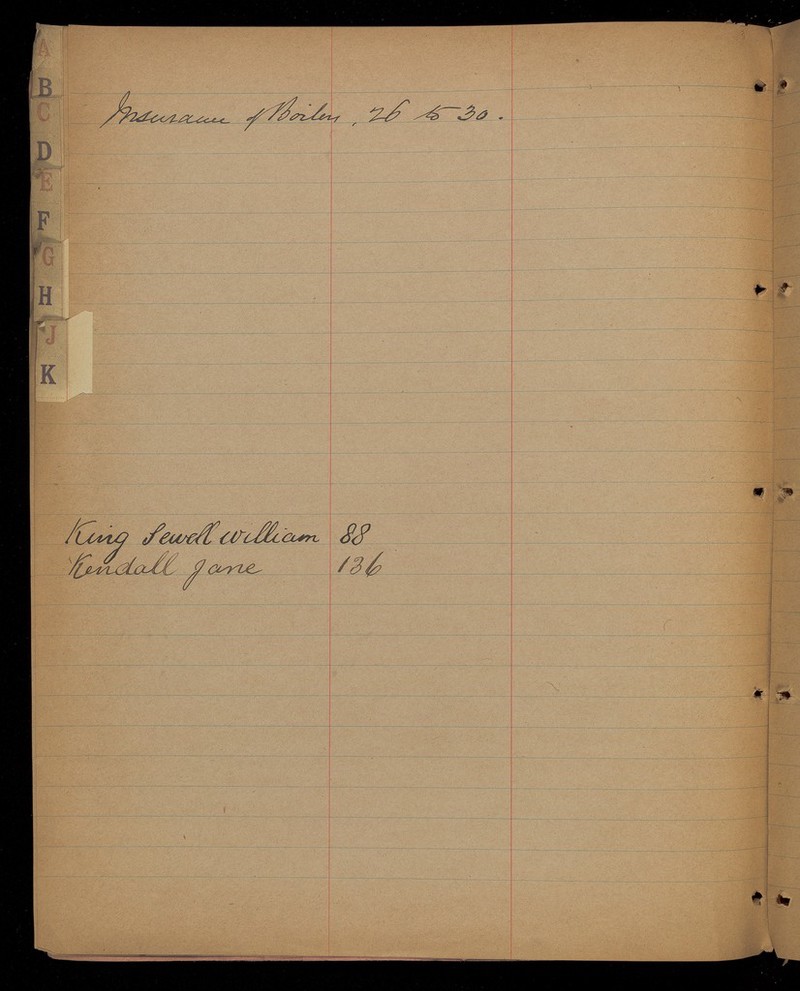 A
B
C
D
E
F
G
H
J
K
Insurance of Boilers, 26 to 30.
King Sewell William 88
Kendall Jane 136